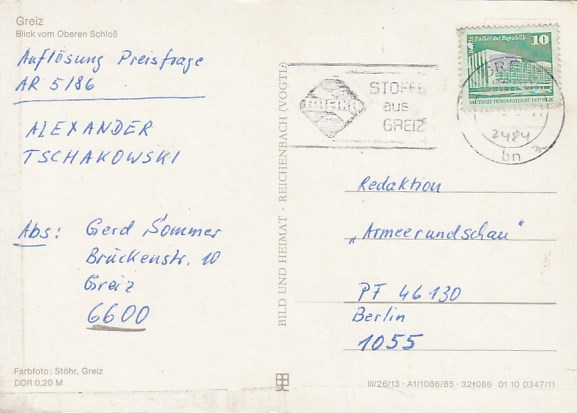 Greiz
Blick vom Oberen Schloß
Auflösung Preisfrage
AR 5/86
ALEXANDER
TSCHAKOWSKI
Abs: Gerd Sommer
Brückenstr. 10
Greiz
6600
Farbfoto: Stöhr, Greiz
DDR 0,20 M
BILD UND HEIMAT · REICHENBACH (VOGTL)
STOFFE
aus
GREIZ
Palast der Republik
10
DEUTSCHE DEMOKRATISCHE REPUBLIK
bn
Redaktion
„Armeerundschau“
PF 46 130
Berlin
1055
III/26/13 · A1/1086/85 · 321086 01 10 0347/11